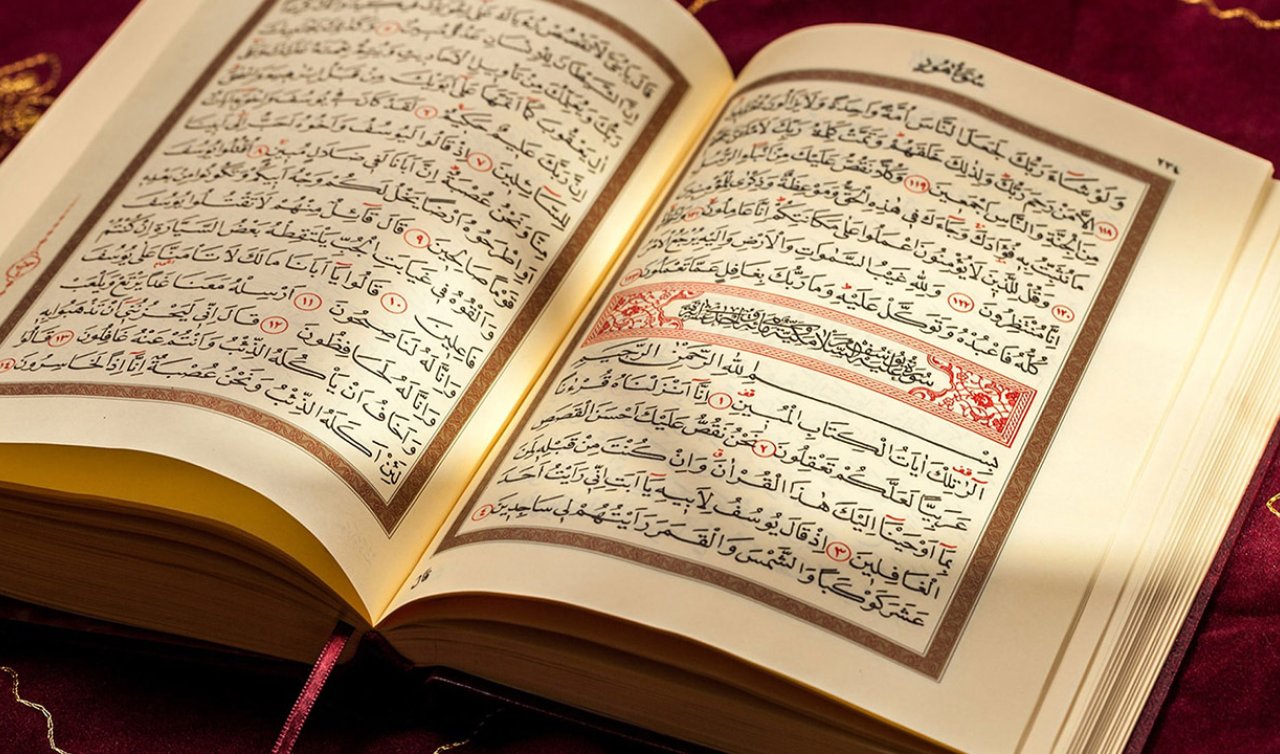 سُورَةُ هُودٍ
٢٣٤
وَلَوْ شَاءَ رَبُّكَ لَجَعَلَ النَّاسَ اُمَّةً وَاحِدَةً وَلَا يَزَالُونَ مُخْتَلِفِينَ ١١٨
اِلَّا مَنْ رَحِمَ رَبُّكَ وَلِذٰلِكَ خَلَقَهُمْ وَتَمَّتْ كَلِمَةُ رَبِّكَ لَاَمْلَـَٔنَّ جَهَنَّمَ
مِنَ الْجِنَّةِ وَالنَّاسِ اَجْمَعِينَ ١١٩ وَكُلًّا نَقُصُّ عَلَيْكَ مِنْ اَنْبَاءِ الرُّسُلِ
مَا نُثَبِّتُ بِهِ فُؤَادَكَ وَجَاءَكَ فِي هٰذِهِ الْحَقُّ وَمَوْعِظَةٌ وَذِكْرٰى لِلْمُؤْمِنِينَ ١٢٠
وَقُلْ لِلَّذِينَ لَا يُؤْمِنُونَ اعْمَلُوا عَلٰى مَكَانَتِكُمْ اِنَّا عَامِلُونَ ١٢١ وَانْتَظِرُوا
اِنَّا مُنْتَظِرُونَ ١٢٢ وَلِلّٰهِ غَيْبُ السَّمٰوَاتِ وَالْاَرْضِ وَاِلَيْهِ يُرْجَعُ الْاَمْرُ
كُلُّهُ فَاعْبُدْهُ وَتَوَكَّلْ عَلَيْهِ وَمَا رَبُّكَ بِغَافِلٍ عَمَّا تَعْمَلُونَ ١٢٣
سُورَةُ يُوسُفَ عَلَيْهِ السَّلَامُ مَكِّيَّةٌ
بِسْمِ اللّٰهِ الرَّحْمٰنِ الرَّحِيمِ
الٓرٰ تِلْكَ اٰيَاتُ الْكِتَابِ الْمُبِينِ ١ اِنَّا اَنْزَلْنَاهُ قُرْءٰنًا
عَرَبِيًّا لَعَلَّكُمْ تَعْقِلُونَ ٢ نَحْنُ نَقُصُّ عَلَيْكَ اَحْسَنَ الْقَصَصِ
بِمَا اَوْحَيْنَا اِلَيْكَ هٰذَا الْقُرْاٰنَ وَاِنْ كُنْتَ مِنْ قَبْلِهِ لَمِنَ
الْغَافِلِينَ ٣ اِذْ قَالَ يُوسُفُ لِاَبِيهِ يَا اَبَتِ اِنِّي رَاَيْتُ اَحَدَ
عَشَرَ كَوْكَبًا وَالشَّمْسَ وَالْقَمَرَ رَاَيْتُهُمْ لِي سَاجِدِينَ ٤
قَالَ
قَالَ يَا بُنَيَّ لَا تَقْصُصْ رُءْيَاكَ عَلٰى اِخْوَتِكَ فَيَكِيدُوا لَكَ كَيْدًا
اِنَّ الشَّيْطَانَ لِلْاِنْسَانِ عَدُوٌّ مُبِينٌ ٥ وَكَذٰلِكَ يَجْتَبِيكَ
رَبُّكَ وَيُعَلِّمُكَ مِنْ تَأْوِيلِ الْاَحَادِيثِ وَيُتِمُّ نِعْمَتَهُ عَلَيْكَ وَعَلٰى
اٰلِ يَعْقُوبَ كَمَا اَتَمَّهَا عَلٰى اَبَوَيْكَ مِنْ قَبْلُ اِبْرٰهِيمَ وَاِسْحٰقَ
اِنَّ رَبَّكَ عَلِيمٌ حَكِيمٌ ٦ لَقَدْ كَانَ فِي يُوسُفَ وَاِخْوَتِهِ اٰيَاتٌ
لِلسَّائِلِينَ ٧ اِذْ قَالُوا لَيُوسُفُ وَاَخُوهُ اَحَبُّ اِلٰى اَبِينَا
مِنَّا وَنَحْنُ عُصْبَةٌ اِنَّ اَبَانَا لَفِي ضَلَالٍ مُبِينٍ ٨ اُقْتُلُوا يُوسُفَ
اَوِ اطْرَحُوهُ اَرْضًا يَخْلُ لَكُمْ وَجْهُ اَبِيكُمْ وَتَكُونُوا مِنْ بَعْدِهِ
قَوْمًا صَالِحِينَ ٩ قَالَ قَائِلٌ مِنْهُمْ لَا تَقْتُلُوا يُوسُفَ
وَاَلْقُوهُ فِي غَيَابَتِ الْجُبِّ يَلْتَقِطْهُ بَعْضُ السَّيَّارَةِ اِنْ كُنْتُمْ
فَاعِلِينَ ١٠ قَالُوا يَا اَبَانَا مَا لَكَ لَا تَأْمَنَّا عَلٰى يُوسُفَ
وَاِنَّا لَهُ لَنَاصِحُونَ ١١ اَرْسِلْهُ مَعَنَا غَدًا يَرْتَعْ وَيَلْعَبْ
وَاِنَّا لَهُ لَحَافِظُونَ ١٢ قَالَ اِنِّي لَيَحْزُنُنِي اَنْ تَذْهَبُوا بِهِ
وَاَخَافُ اَنْ يَأْكُلَهُ الذِّئْبُ وَاَنْتُمْ عَنْهُ غَافِلُونَ ١٣ قَالُوا
لَئِنْ اَكَلَهُ الذِّئْبُ وَنَحْنُ عُصْبَةٌ اِنَّا اِذًا لَخَاسِرُونَ ١٤